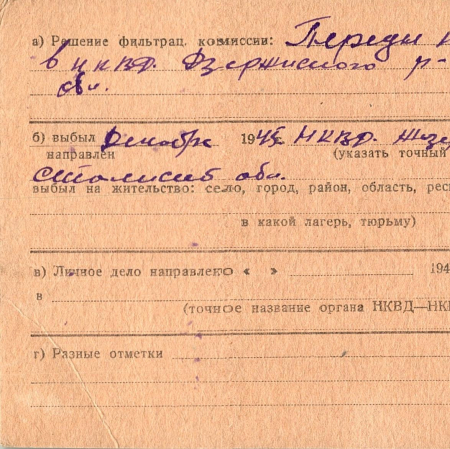 а) Решение фильтрац. комиссии: Переди
в НКВД. Дзержинского р-
обл.
б) выбыл Декабрь 1945 НКВД.
направлен (указать точный
обл.
выбыл на жительство: село, город, район, область, рес
в какой лагерь, тюрьму)
в) Личное дело направлено « » 194
в
(точное название органа НКВД—НК
г) Разные отметки